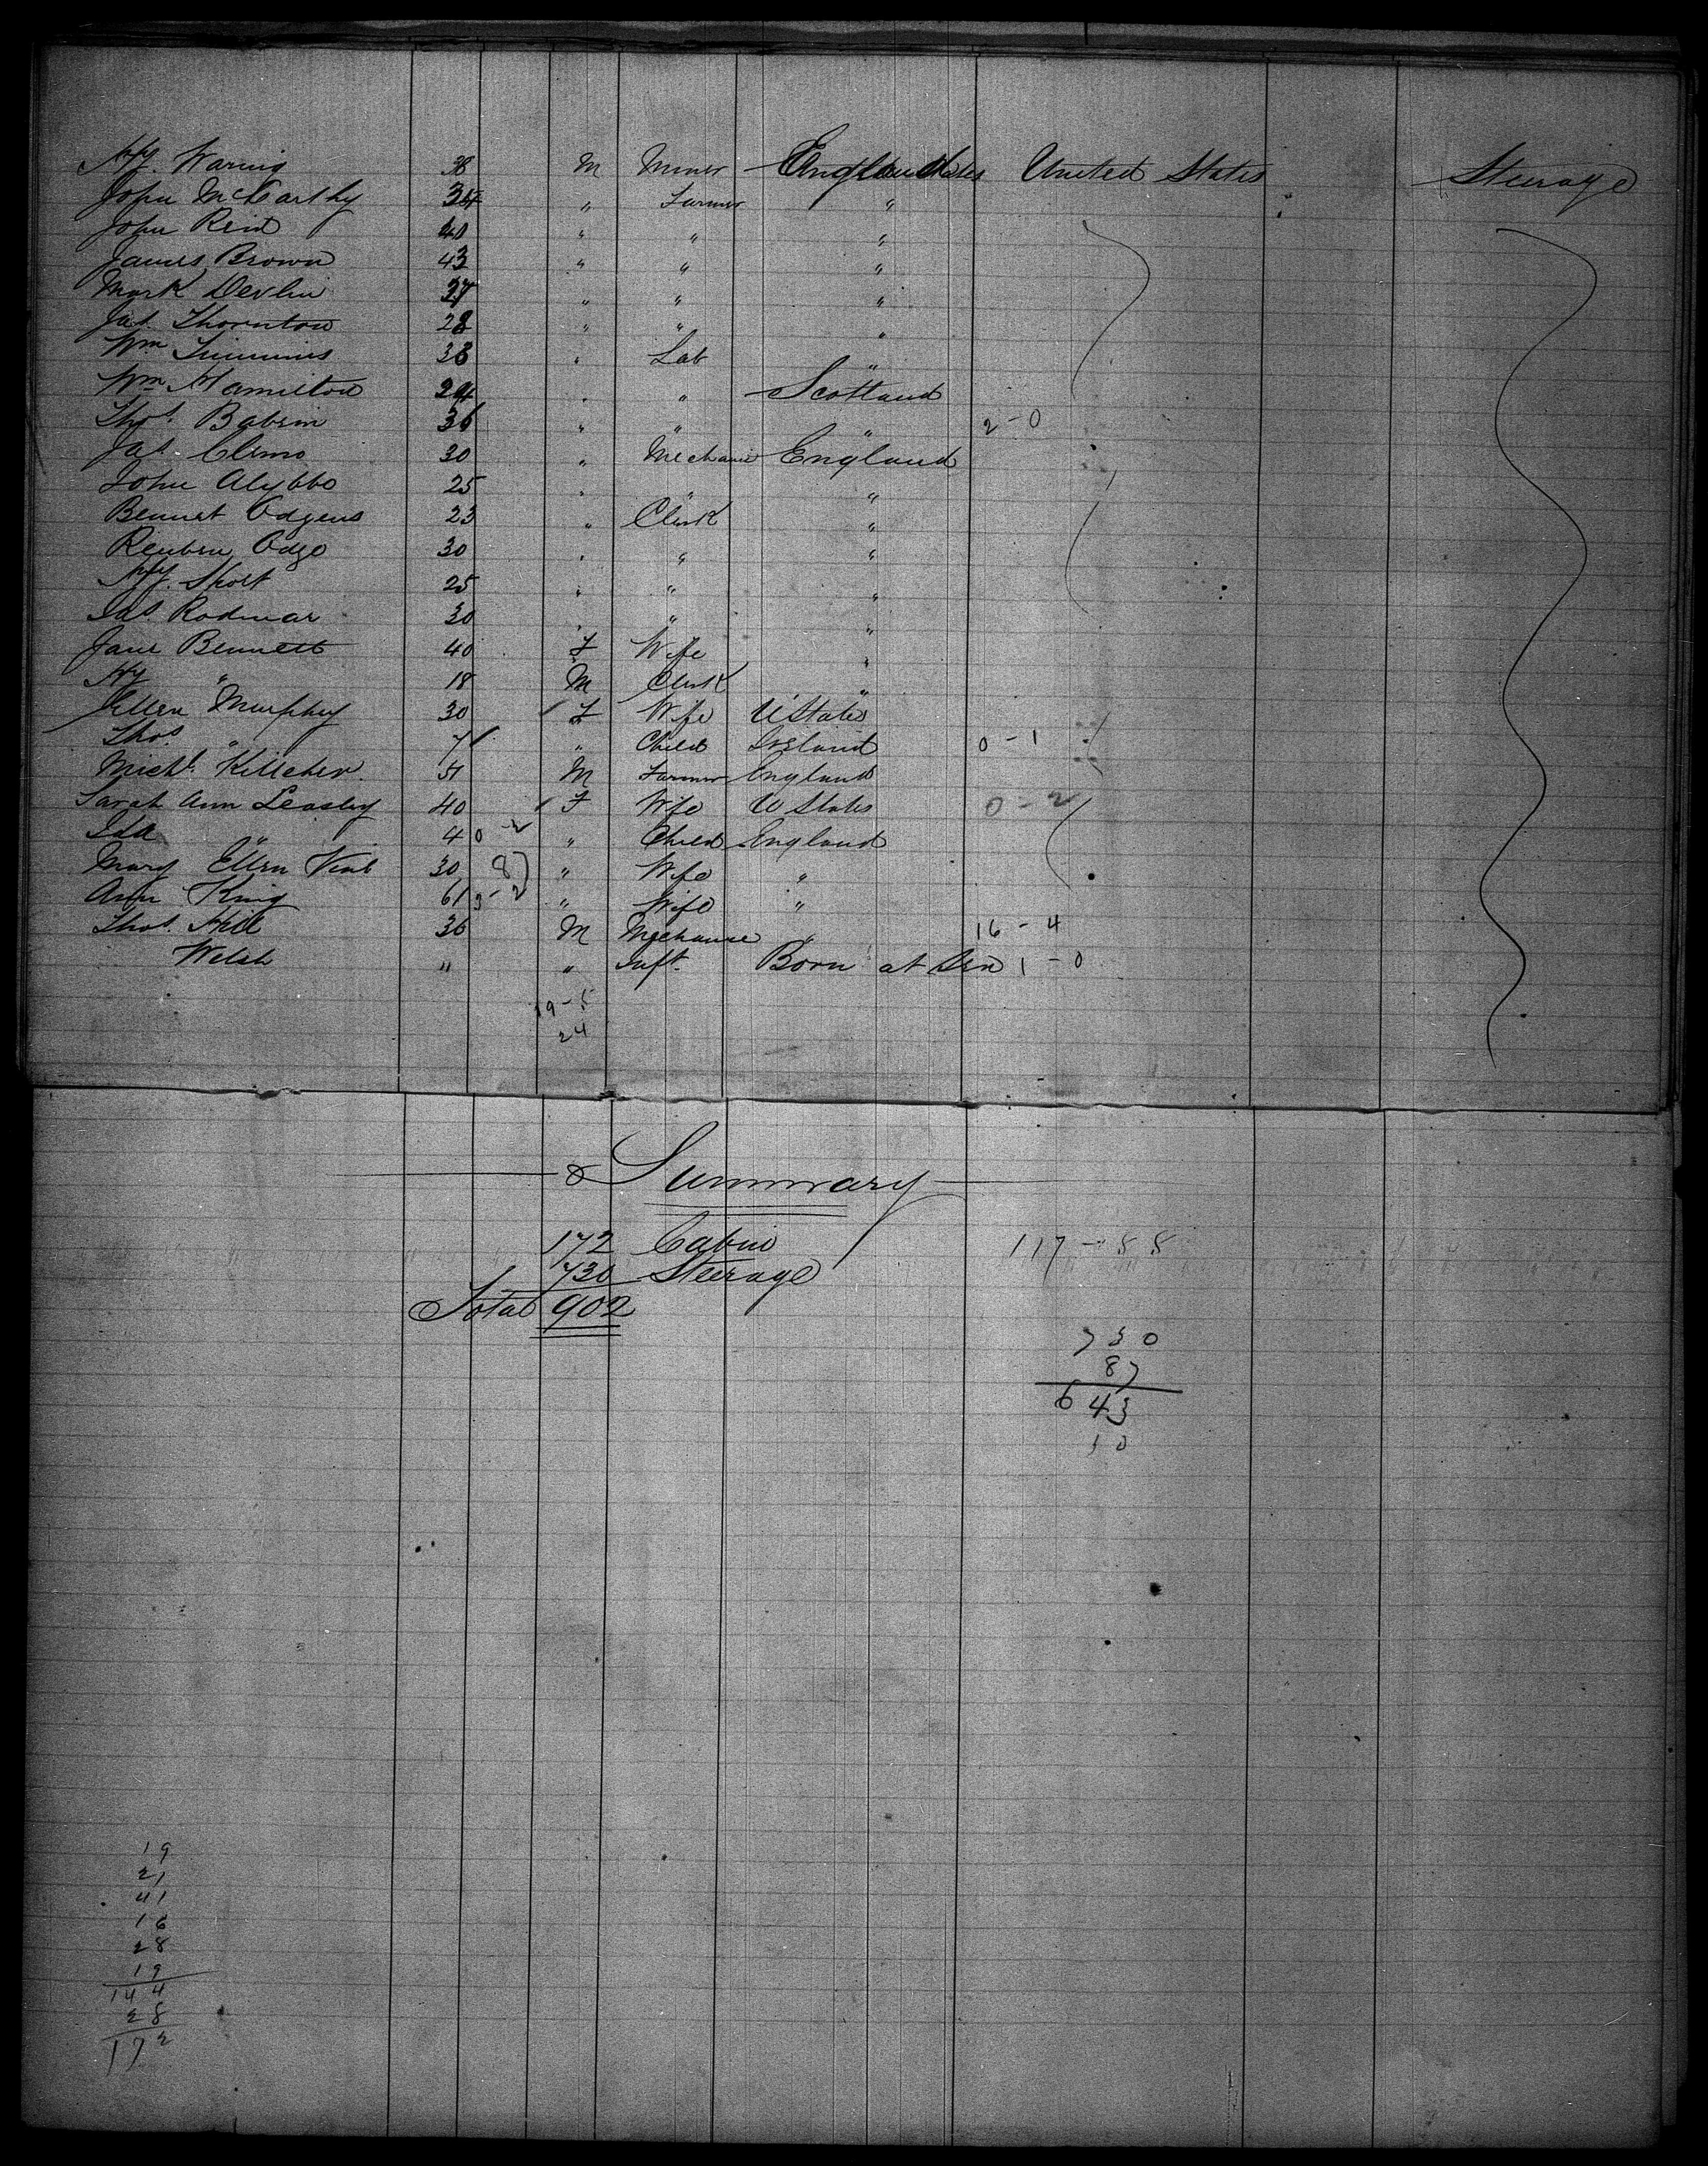 Hy. Waring 38 M Miner England United States Steerage
John McCarthy 34 " Farmer "
John Reid 40 " " "
James Brown 43 " " "
Mark Devlin 37 " " "
Jas. Thornton 28 " " "
Wm Timmins 38 " Lab "
Wm Hamilton 24 " " Scotland
Thos. 36 " " " 2-0
Jas. Clemo 30 " Mechanic England
John 25 " " "
Bennet Odgens 23 " Clerk "
Reuben Odgo 30 " " "
Hy. Short 25 " " "
Rodmar 30 " " "
Jane Bennett 40 F Wife "
Hy " 18 M Clerk "
Ellen Murphy 30 F Wife U States
Thos. " 7 " Child Ireland 0-1
Michl. Killcher 51 M Farmer England
Sarah Ann Leasley 40 F Wife U States 0-2
Ida " 4 0-2 " Child England
Mary Ellen 30 87 " Wife "
Ann King 61 3-2 " Wife "
Thos. Hill 36 M Mechanic " 16-4
Welsh " " Inft. Born at Sea 1-0
19-5
24
Summary
172 Cabin 117-88
730 Steerage
Total 902
730
87
643
10
19
21
41
16
28
19
144
28
172